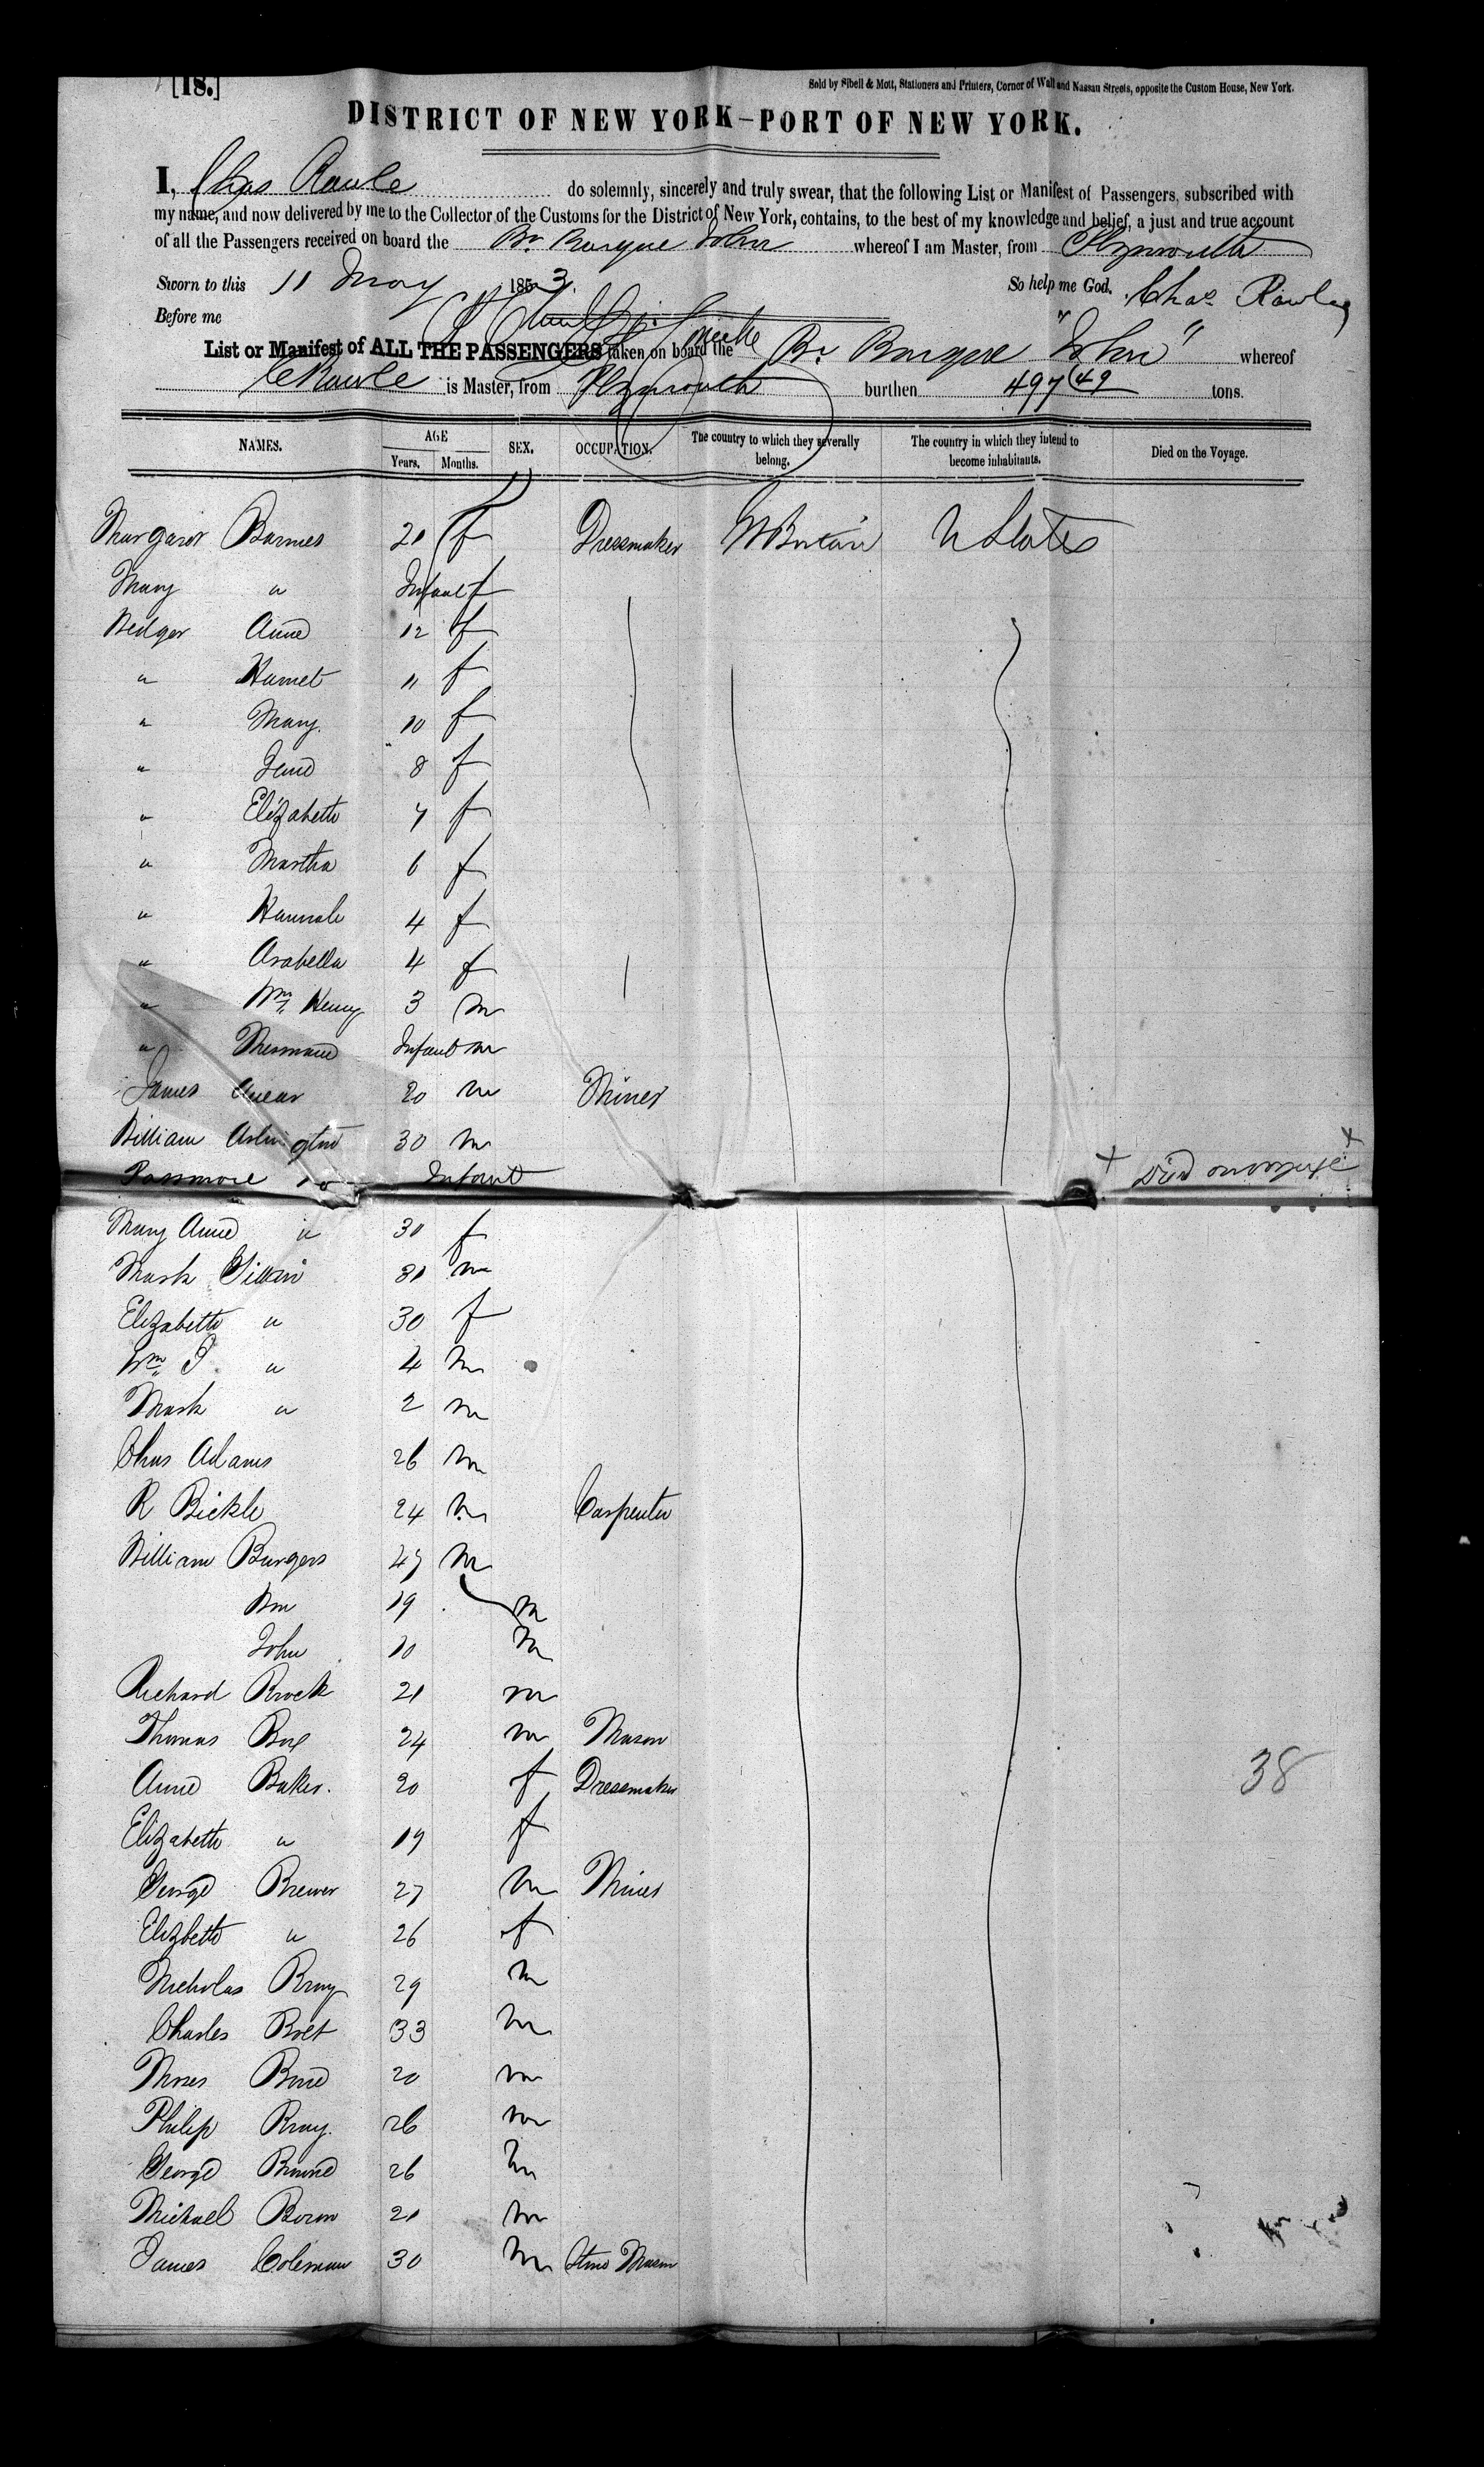 [18.]
Sold by Sibell & Mott, Stationers and Printers, Corner of Wall and Nassau Streets, opposite the Custom House, New York.
DISTRICT OF NEW YORK—PORT OF NEW YORK.
I, Chas Rawle do solemnly, sincerely and truly swear, that the following List or Manifest of Passengers, subscribed with
my name, and now delivered by me to the Collector of the Customs for the District of New York, contains, to the best of my knowledge and belief, a just and true account
of all the Passengers received on board the Br Barque John whereof I am Master, from Plymouth
Sworn to this 11 May 1853. So help me God. Chas Rawle
Before me
List or Manifest of ALL THE PASSENGERS taken on board the Br Barque "John" whereof
C Rawle is Master, from Plymouth burthen 497 49 tons.
NAMES. AGE Years. Months. SEX. OCCUPATION. The country to which they severally belong. The country in which they intend to become inhabitants. Died on the Voyage.
Margaret Barnes 21 f Dressmaker G Britain U States
Mary " Infant f
Anne 12 f
" Harriet 11 f
" Mary. 10 f
" Jane 8 f
" Elizabeth 7 f
" Martha 6 f
" Hannah 4 f
" Arabella 4 f
" Wm Henry 3 m
" Infant m
James 20 m Miner
William 30 m
Passmore Do Infant
Mary Anne " 30 f
Mark 31 m
Elizabeth " 30 f
Wm J. " 4 m
Mark " 2 m
Chas Adams 26 m
R Bickle 24 m Carpenter
William Burgess 47 m
Wm 19 m
John 10 m
Richard Brock 21 m
Thomas Box 24 m Mason
Anne Baker. 20 f Dressmaker
Elizabeth " 19 f
38
George Brewer 27 m Miner
Elizbeth " 26 f
Nicholas Bray 29 m
Charles 33 m
Moses 20 m
Philip Bray. 26 m
George Browne 26 m
Michael 21 m
James Coleman 30 m Stone Mason